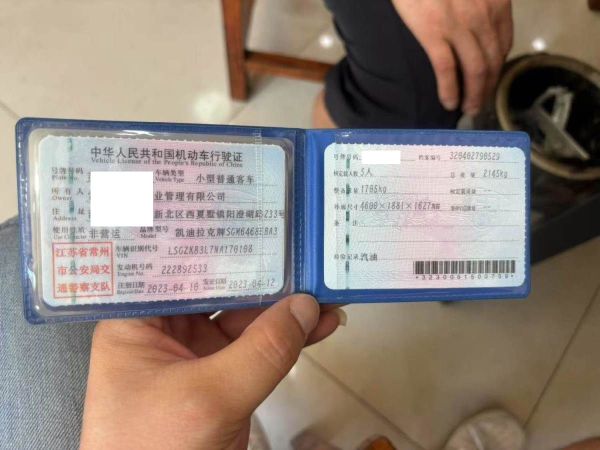 中华人民共和国机动车行驶证
Vehicle License of the People's Republic of China
车辆类型 小型普通客车
Vehicle Type
所有人 业管理有限公司
Owner
住址 新北区西夏墅镇阳澄湖路233号
Address
使用性质 非营运 品牌型号 凯迪拉克牌SGM6468EBA3
Use Character Model
江苏省常州市公安局交通警察支队
车辆识别代号 LSGZK83L7NA170108
VIN
发动机号码 222892533
Engine No.
注册日期 2023-04-10 发证日期 2023-04-12
Register Date Issue Date
号牌号码 档案编号 320402790529
核定载人数 5人 总质量 2145kg
整备质量 1765kg 核定载质量
外廓尺寸 4600×1881×1627mm
备注
检验记录 汽油